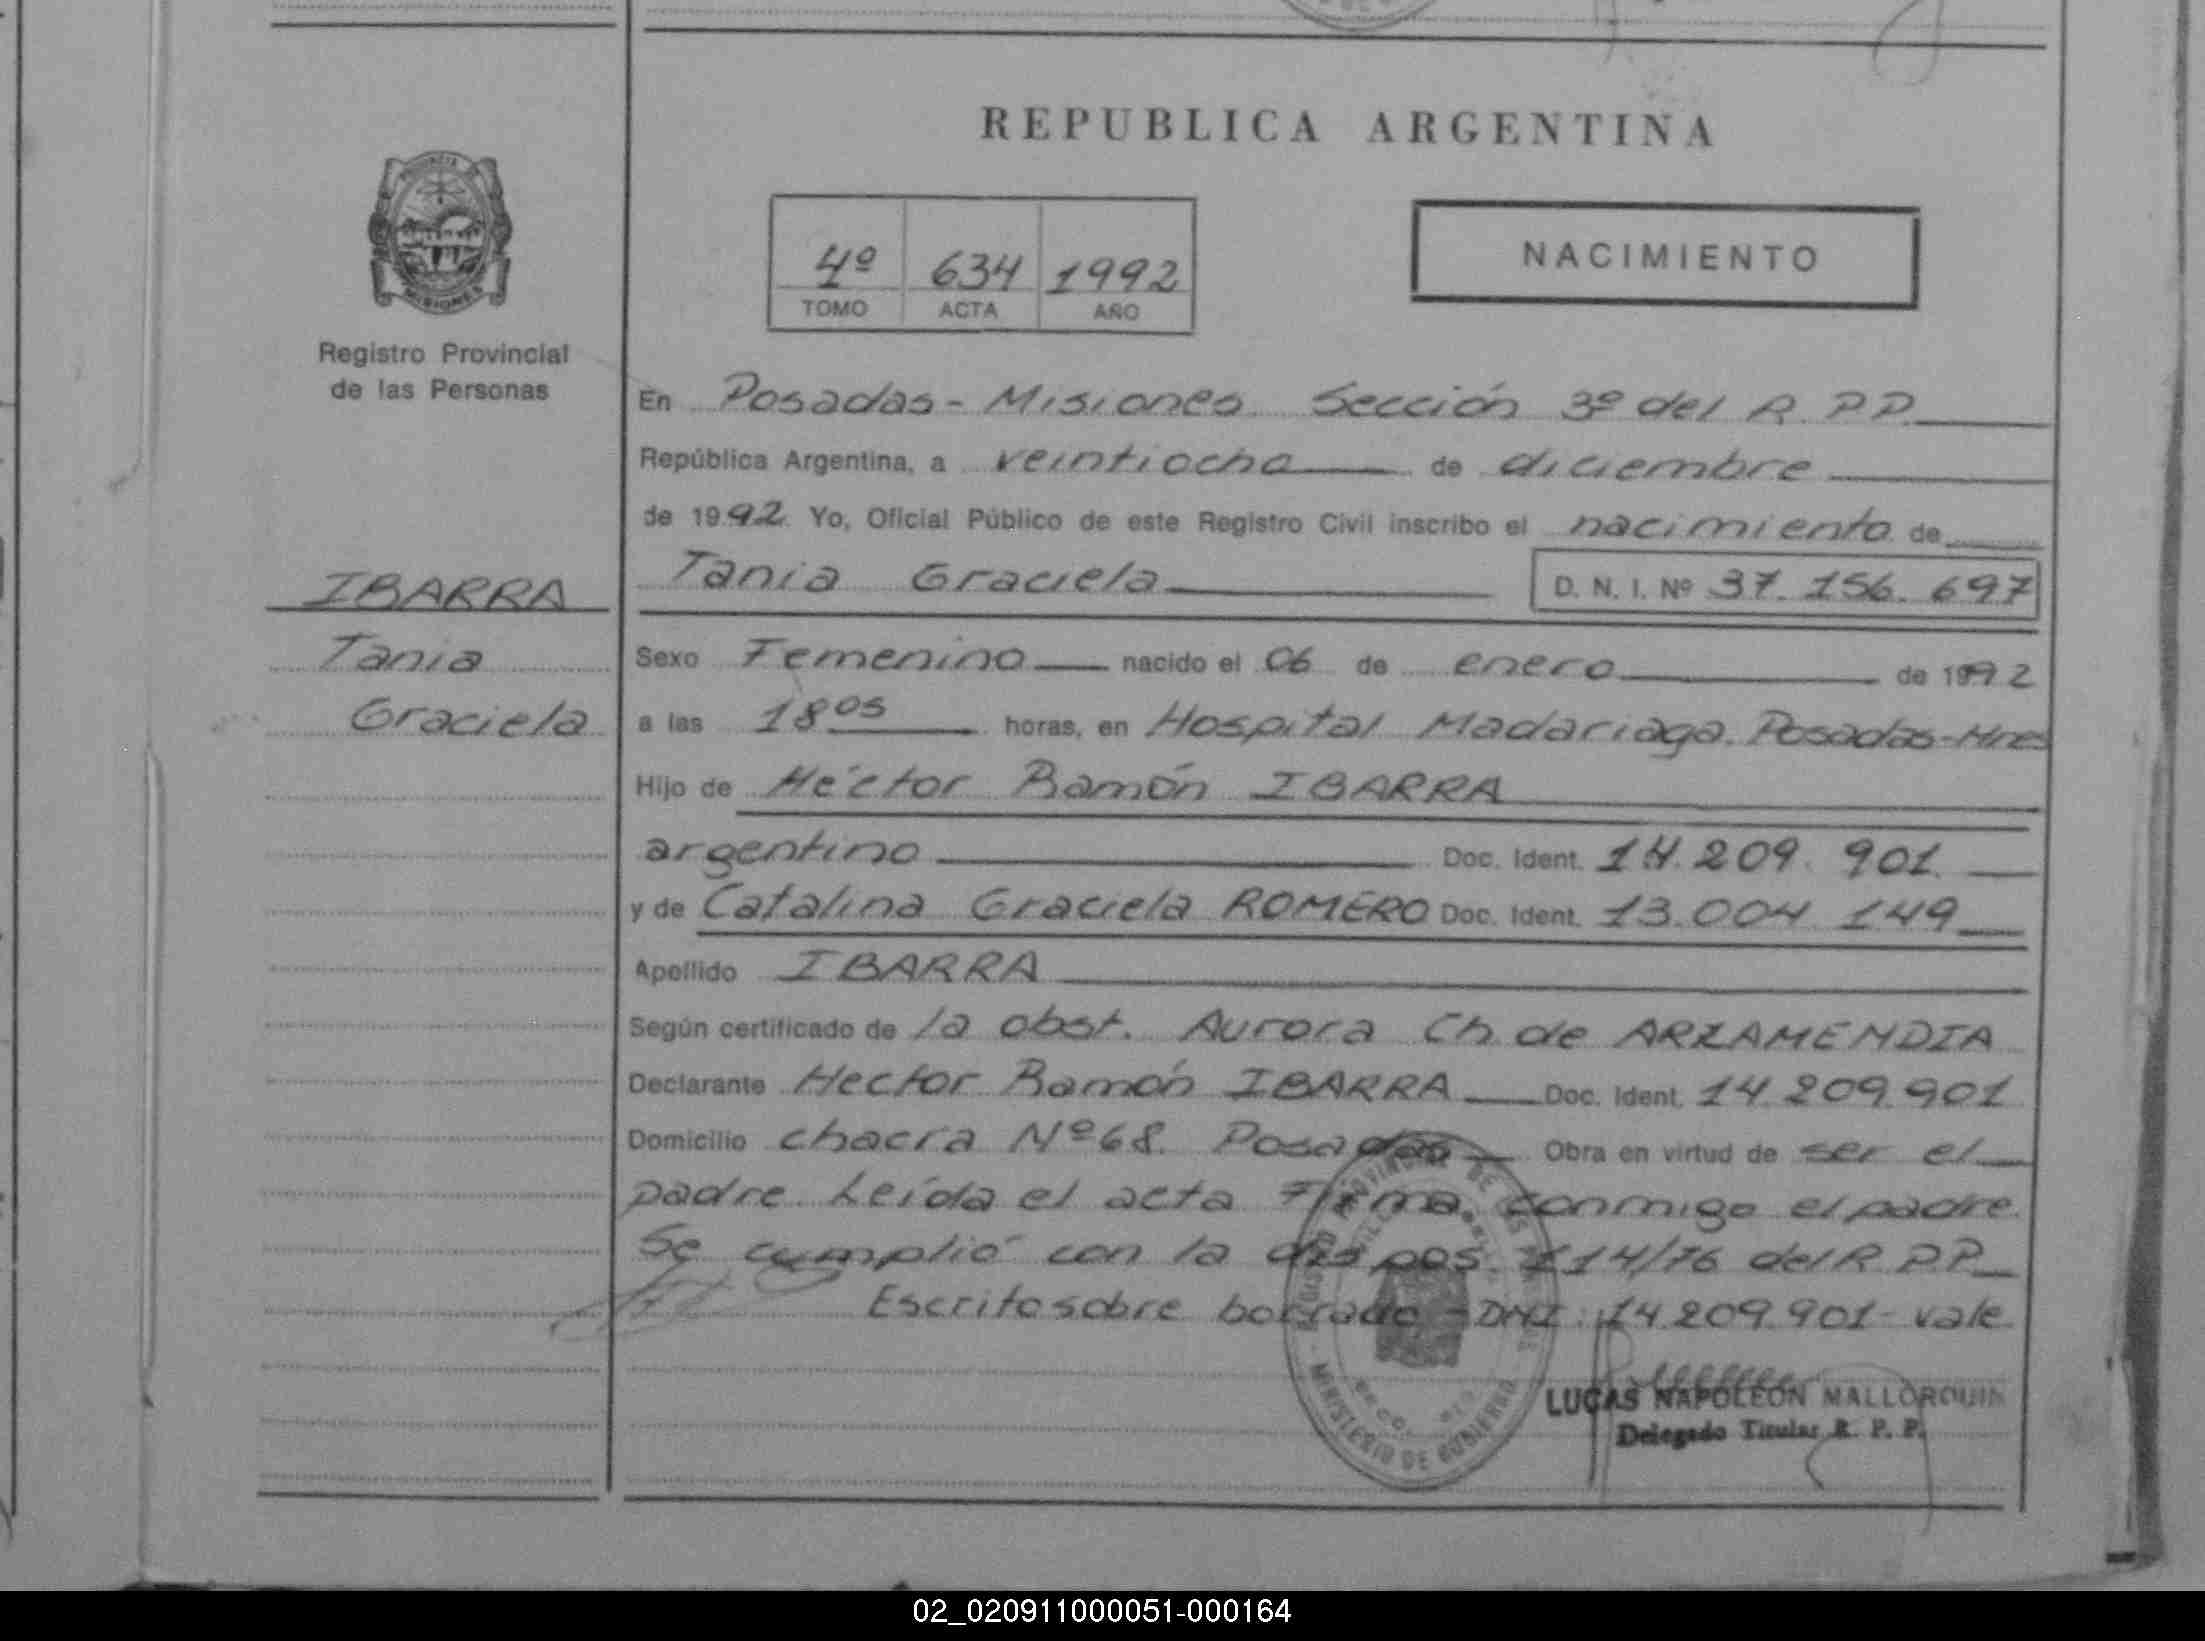 REPUBLICA ARGENTINA
PROVINCIA
MISIONES
Registro Provincial
de las Personas
4º 634 1992
TOMO ACTA AÑO
NACIMIENTO
IBARRA
Tania
Graciela
En Posadas - Misiones Sección 3º del R.P.P.
República Argentina, a veintiocho de diciembre
de 1992. Yo, Oficial Público de este Registro Civil inscribo el nacimiento de
Tania Graciela D. N. I. Nº 37.156.697
Sexo Femenino nacido el 06 de enero de 1992
a las 18 05 horas, en Hospital Madariaga. Posadas-Mnes
Hijo de Héctor Ramón IBARRA
argentino Doc. Ident. 14.209.901.
y de Catalina Graciela ROMERO Doc. Ident. 13.004.149
Apellido IBARRA
Según certificado de la obst. Aurora Ch. de ARZAMENDIA
Declarante Hector Ramón IBARRA Doc. Ident. 14.209.901
Domicilio chacra Nº 68. Posadas Obra en virtud de ser el
padre. Leída el acta Firma conmigo el padre.
Se cumplió con la dispos. 114/76 del R.P.P.
Escrito sobre borrado - DNI: 14.209.901 - vale.
MINISTERIO DE GOBIERNO
LUCAS NAPOLEON MALLORQUIN
Delegado Titular R. P. P.
02_020911000051-000164